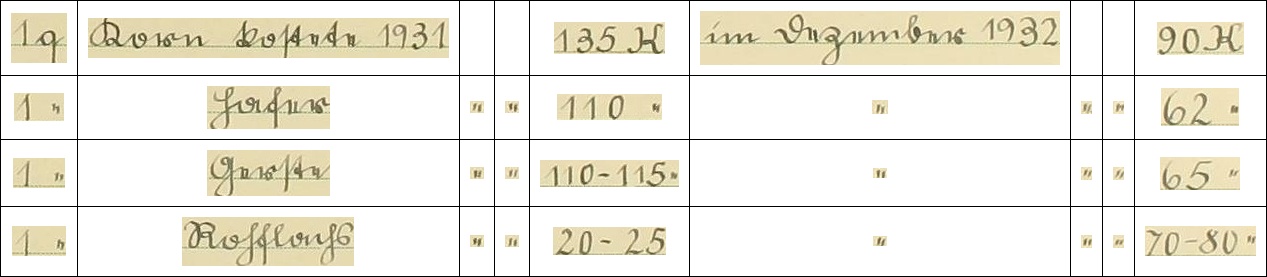 1q Korn kostete 1931 135 K im Dezember 1932 90 K
1 " Hafer " " 110 " " " " 62 "
1 " Gerste " " 110-115 " " " " 65 "
1 " Rohflachs " " 20-25 " " " 70-80 "